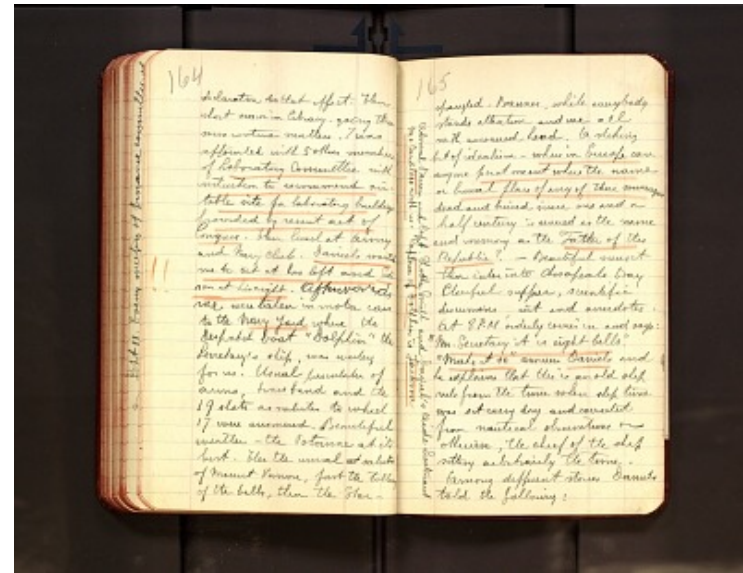 164
declaration to that effect. Then
short recess in Library, going then
into routine matters. I was
appointed with 5 other members
of Laboratory Committee with
instruction to recommend sui-
table site for laboratory building
provided by recent act of
Congress. Then lunch at Army
and Navy Club. Daniels wants
me to sit at his left and Edi-
son at his right. Afterwards
we were taken in motor cars
to the Navy Yard where the
Despatch boat "Dolphin" the
Secretary's ship, was waiting
for us. Usual presentation of
arms, brass band and the
19 shots as salutes to which
17 were answered. Beautiful
weather - the Potomac at its
best. Then the usual salute
of Mount Vernon, first the tolling
of the bells, then the Star-
165
spangled Banner, while everybody
stands attention and we all
with uncovered head. A striking
bit of idealism - where in Europe can
anyone point out where the name
or burial place of any of their
dead and buried since one and a
half century is revered as the name
and memory as the Father of this
Republic? - Beautiful sunset
then into Chesapeake Bay
Cheerful supper, scientific
discussions, wit and anecdotes.
At 8 P.M. orderly comes in and says:
"Mr. Secretary it is eight bells"
"Make it so" answers Daniels and
he explains that this is an old ship
rule from the time when ship time
was set every day and corrected
from nautical observations or
otherwise, the chief of the ship
setting arbitrarily the time.
Among different stories Daniels
told the following: